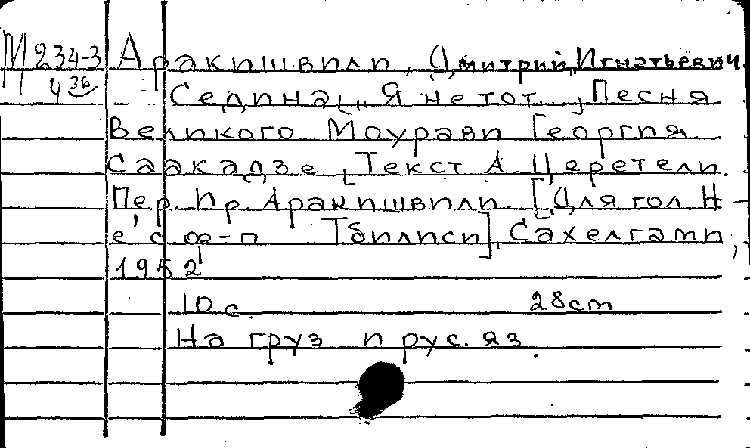 М 234-3 Аракишвили, Дмитрий Игнатьевич.
4 36 Седина [„Я не тот...] Песня
Великого Моурави Георгия
Саакадзе [Текст А Церетели.
Пер. Ир. Аракишвили. [Для гол Н-
е с ф-п Тбилиси], Сахелгами,
1952
10 с. 28 cm
На груз и рус. яз.